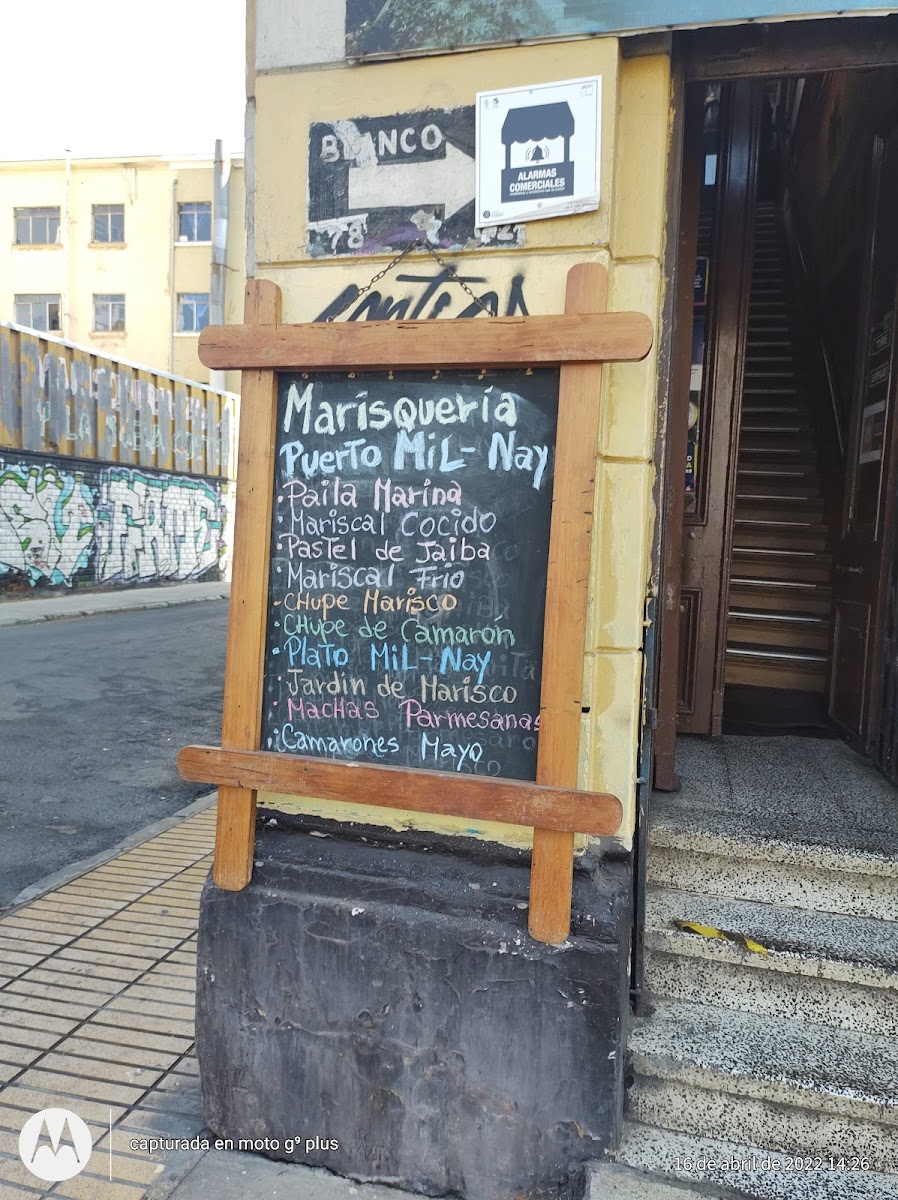 BLANCO
78
ALARMAS
COMERCIALES
Marisquería
Puerto MiL-Nay
·Paila Marina
·Mariscal Cocido
·Pastel de Jaiba
·Mariscal Frio
·CHupe Marisco
·CHupe de Camarón
·Plato MiL-Nay
·Jardin de Marisco
·MacHas Parmesanas
·Camarones Mayo
capturada en moto g⁹ plus
16 de abril de 2022 14:26